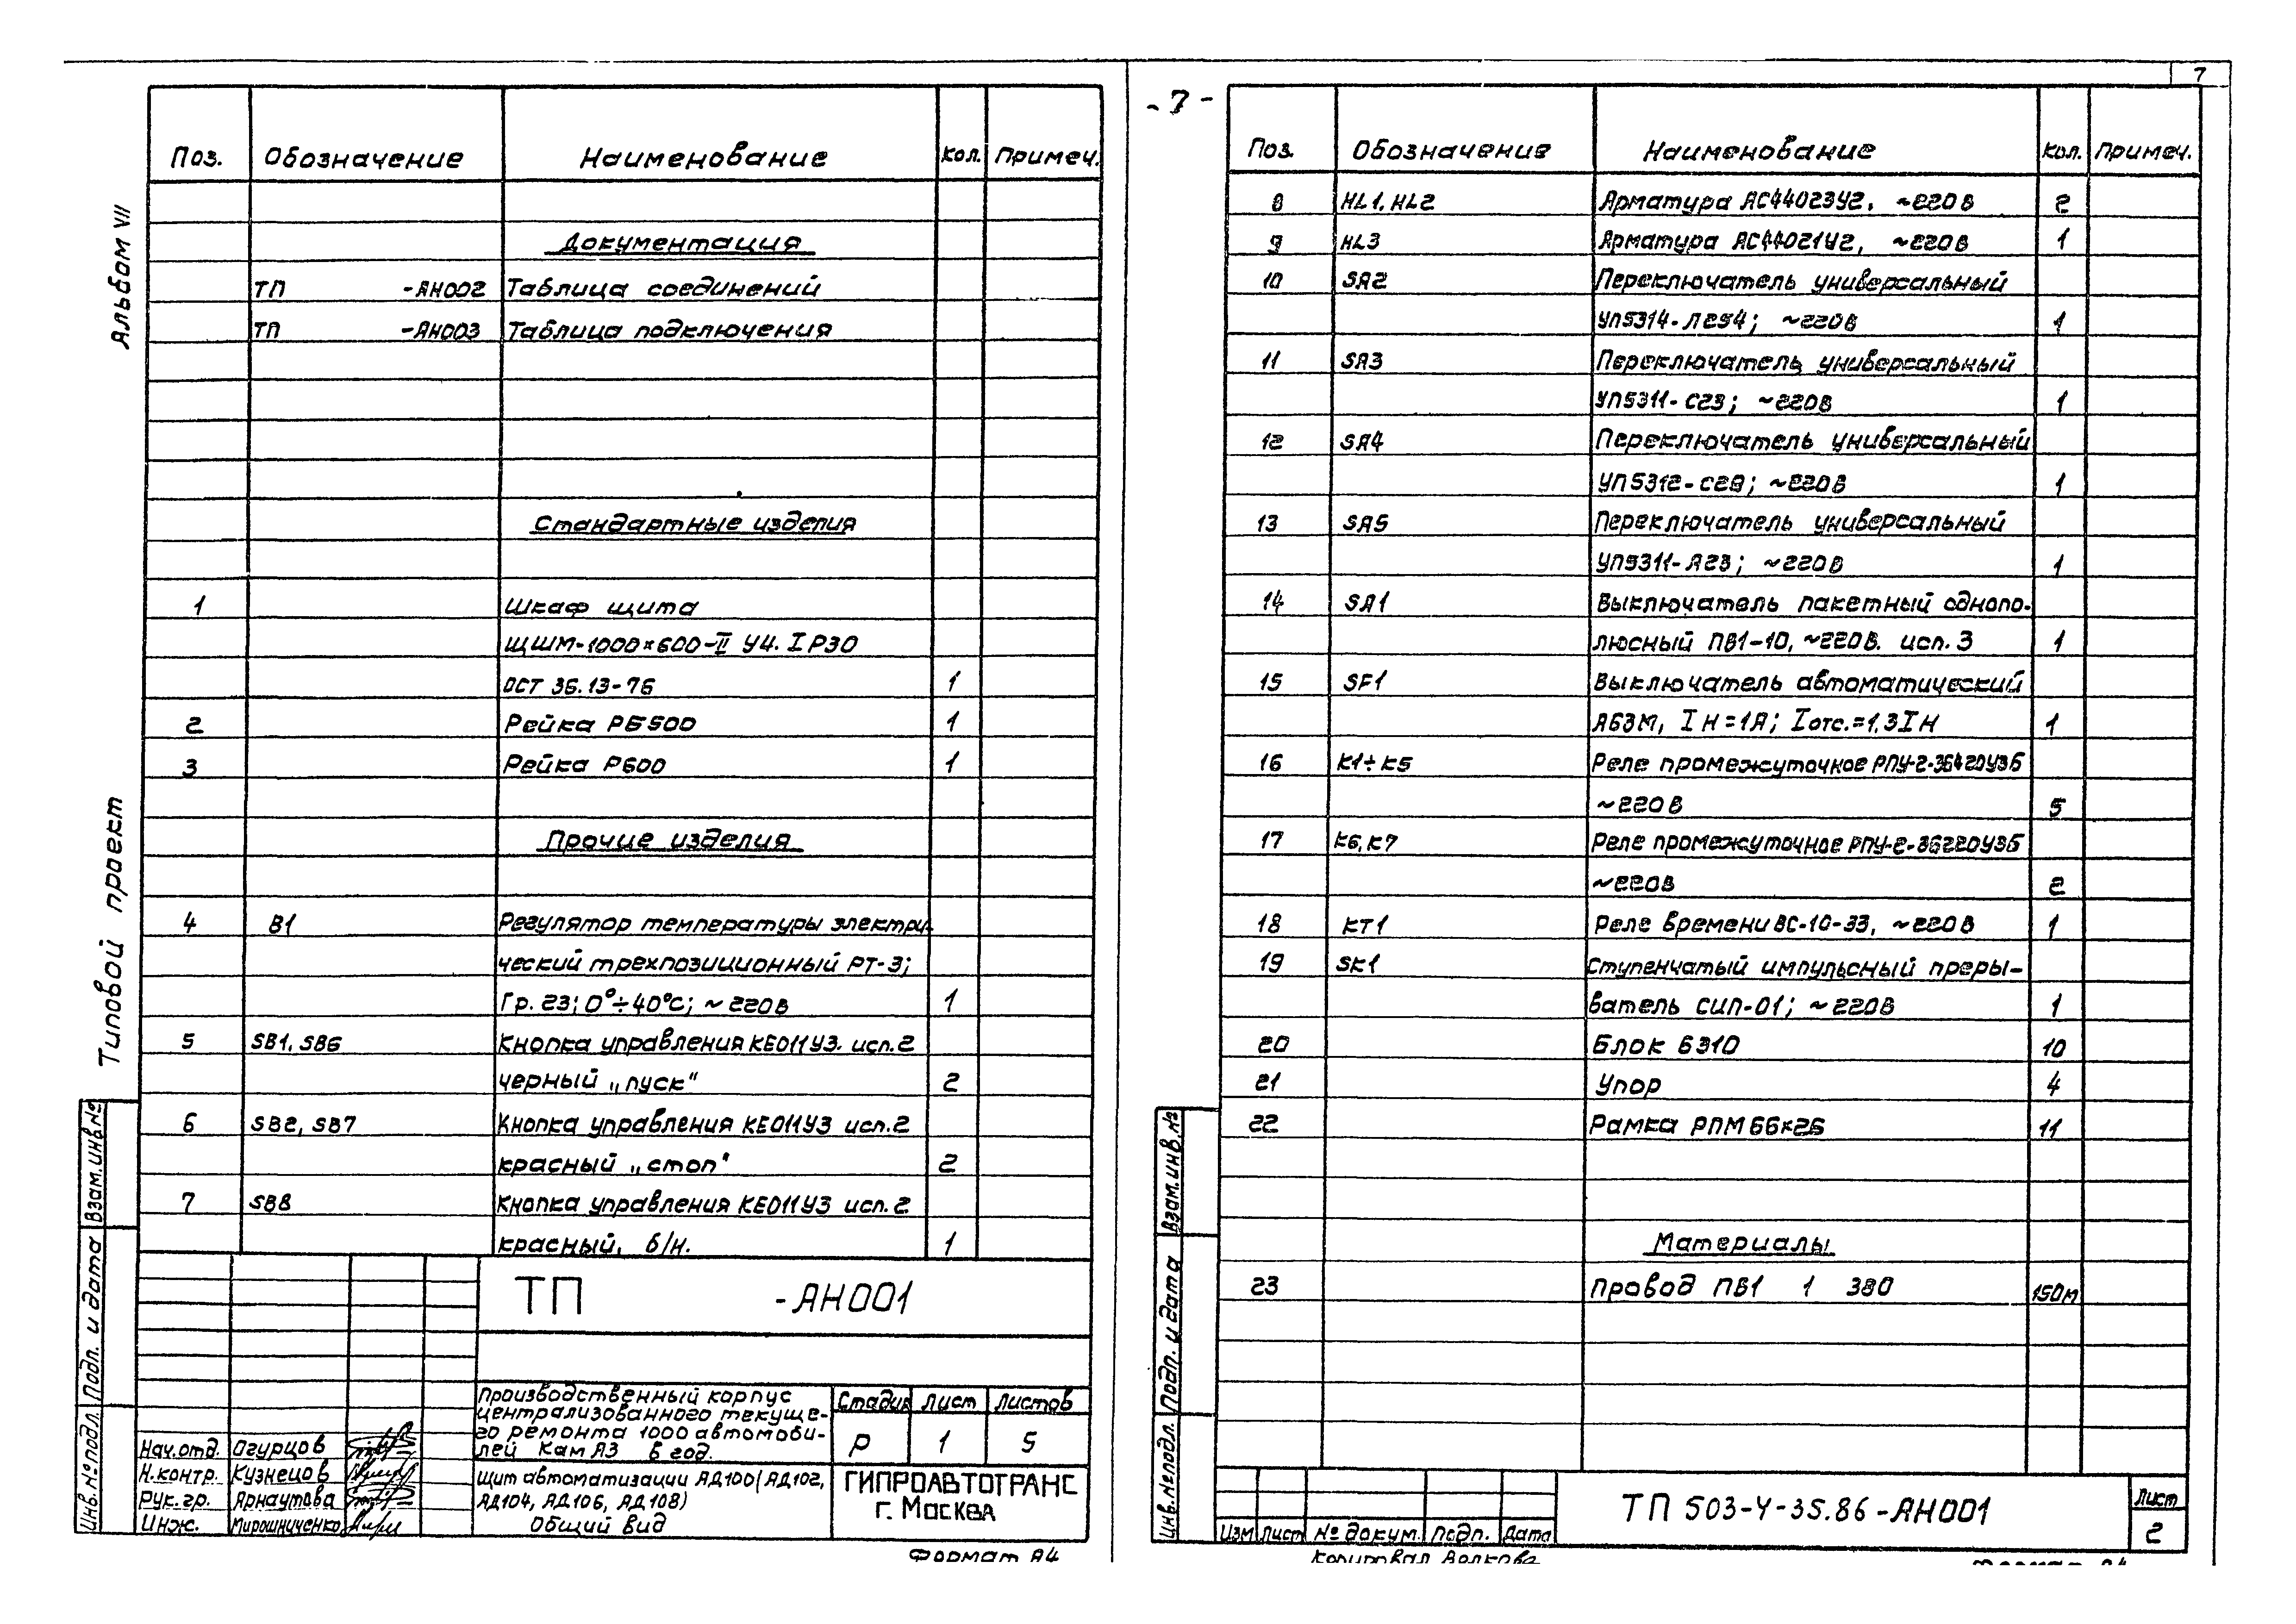 7
- 7 -
Альбом VII
Типовой проект
Поз. Обозначение Наименование Кол. Примеч.
Документация
ТП -АН002 Таблица соединений
ТП -АН003 Таблица подключения
Стандартные изделия
1 Шкаф щита
ЩШМ-1000×600-II У4. IР30
ОСТ 36.13-76 1
2 Рейка РБ500 1
3 Рейка Р600 1
Прочие изделия
4 В1 Регулятор температуры электри-
ческий трехпозиционный РТ-3;
Гр. 23; 0°÷40°С; ~220В 1
5 SB1, SB6 Кнопка управления КЕ011У3. исп.2
черный „пуск" 2
6 SB2, SB7 Кнопка управления КЕ011У3 исп.2
красный „стоп" 2
7 SB8 Кнопка управления КЕ011У3 исп.2
красный, б/н. 1
ТП -АН001
Производственный корпус
централизованного текуще-
го ремонта 1000 автомоби-
лей КамАЗ в год.
Стадия Лист Листов
Р 1 5
Щит автоматизации АД100(АД102,
АД104, АД106, АД108)
Общий вид
ГИПРОАВТОТРАНС
г. Москва
Нач.отд. Огурцов
Н.контр. Кузнецов
Рук.гр. Арнаутова
Инж. Мирошниченко
Взам.инв.№
Подп. и дата
Инв.№подл.
Формат А4
Поз. Обозначение Наименование Кол. Примеч.
8 HL1, HL2 Арматура АС44023У2, ~220В 2
9 HL3 Арматура АС44021У2, ~220В 1
10 SA2 Переключатель универсальный
УП5314-Л254; ~220В 1
11 SA3 Переключатель универсальный
УП5311-С23; ~220В 1
12 SA4 Переключатель универсальный
УП5312-С29; ~220В 1
13 SA5 Переключатель универсальный
УП5311-А23; ~220В 1
14 SA1 Выключатель пакетный однопо-
люсный ПВ1-10, ~220В. исп. 3 1
15 SF1 Выключатель автоматический
А63М, Iн=1А; Iотс.=1,3Iн 1
16 К1÷К5 Реле промежуточное РПУ-2-36420У3Б
~220В 5
17 К6, К7 Реле промежуточное РПУ-2-36220У3Б
~220В 2
18 КТ1 Реле времени ВС-10-33, ~220В 1
19 SK1 Ступенчатый импульсный преры-
ватель СИП-01; ~220В 1
20 Блок Б310 10
21 Упор 4
22 Рамка РПМ 66×26 11
Материалы
23 Провод ПВ1 1 380 150м
Взам.инв.№
Подп. и дата
Инв.№подл.
Изм Лист № докум. Подп. Дата
ТП 503-4-35.86-АН001
Лист
2
Копировал Волкова
Формат А4